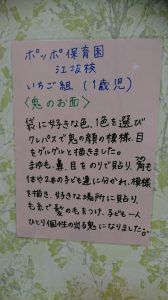 ポッポ保育園
江坂校
いちご組(1歳児)
〈鬼のお面〉
袋に好きな色、1色を選び
クレパスで鬼の顔の模様、目
をグルグルと描きました。
まゆ毛、鼻、目をのりで貼り、翌月
体や2本の子ども達に分かれ、模様
を描き、好きな場所に貼り、
毛糸で髪の毛をつけ、子ども一人
ひとり個性の出る鬼になりました。